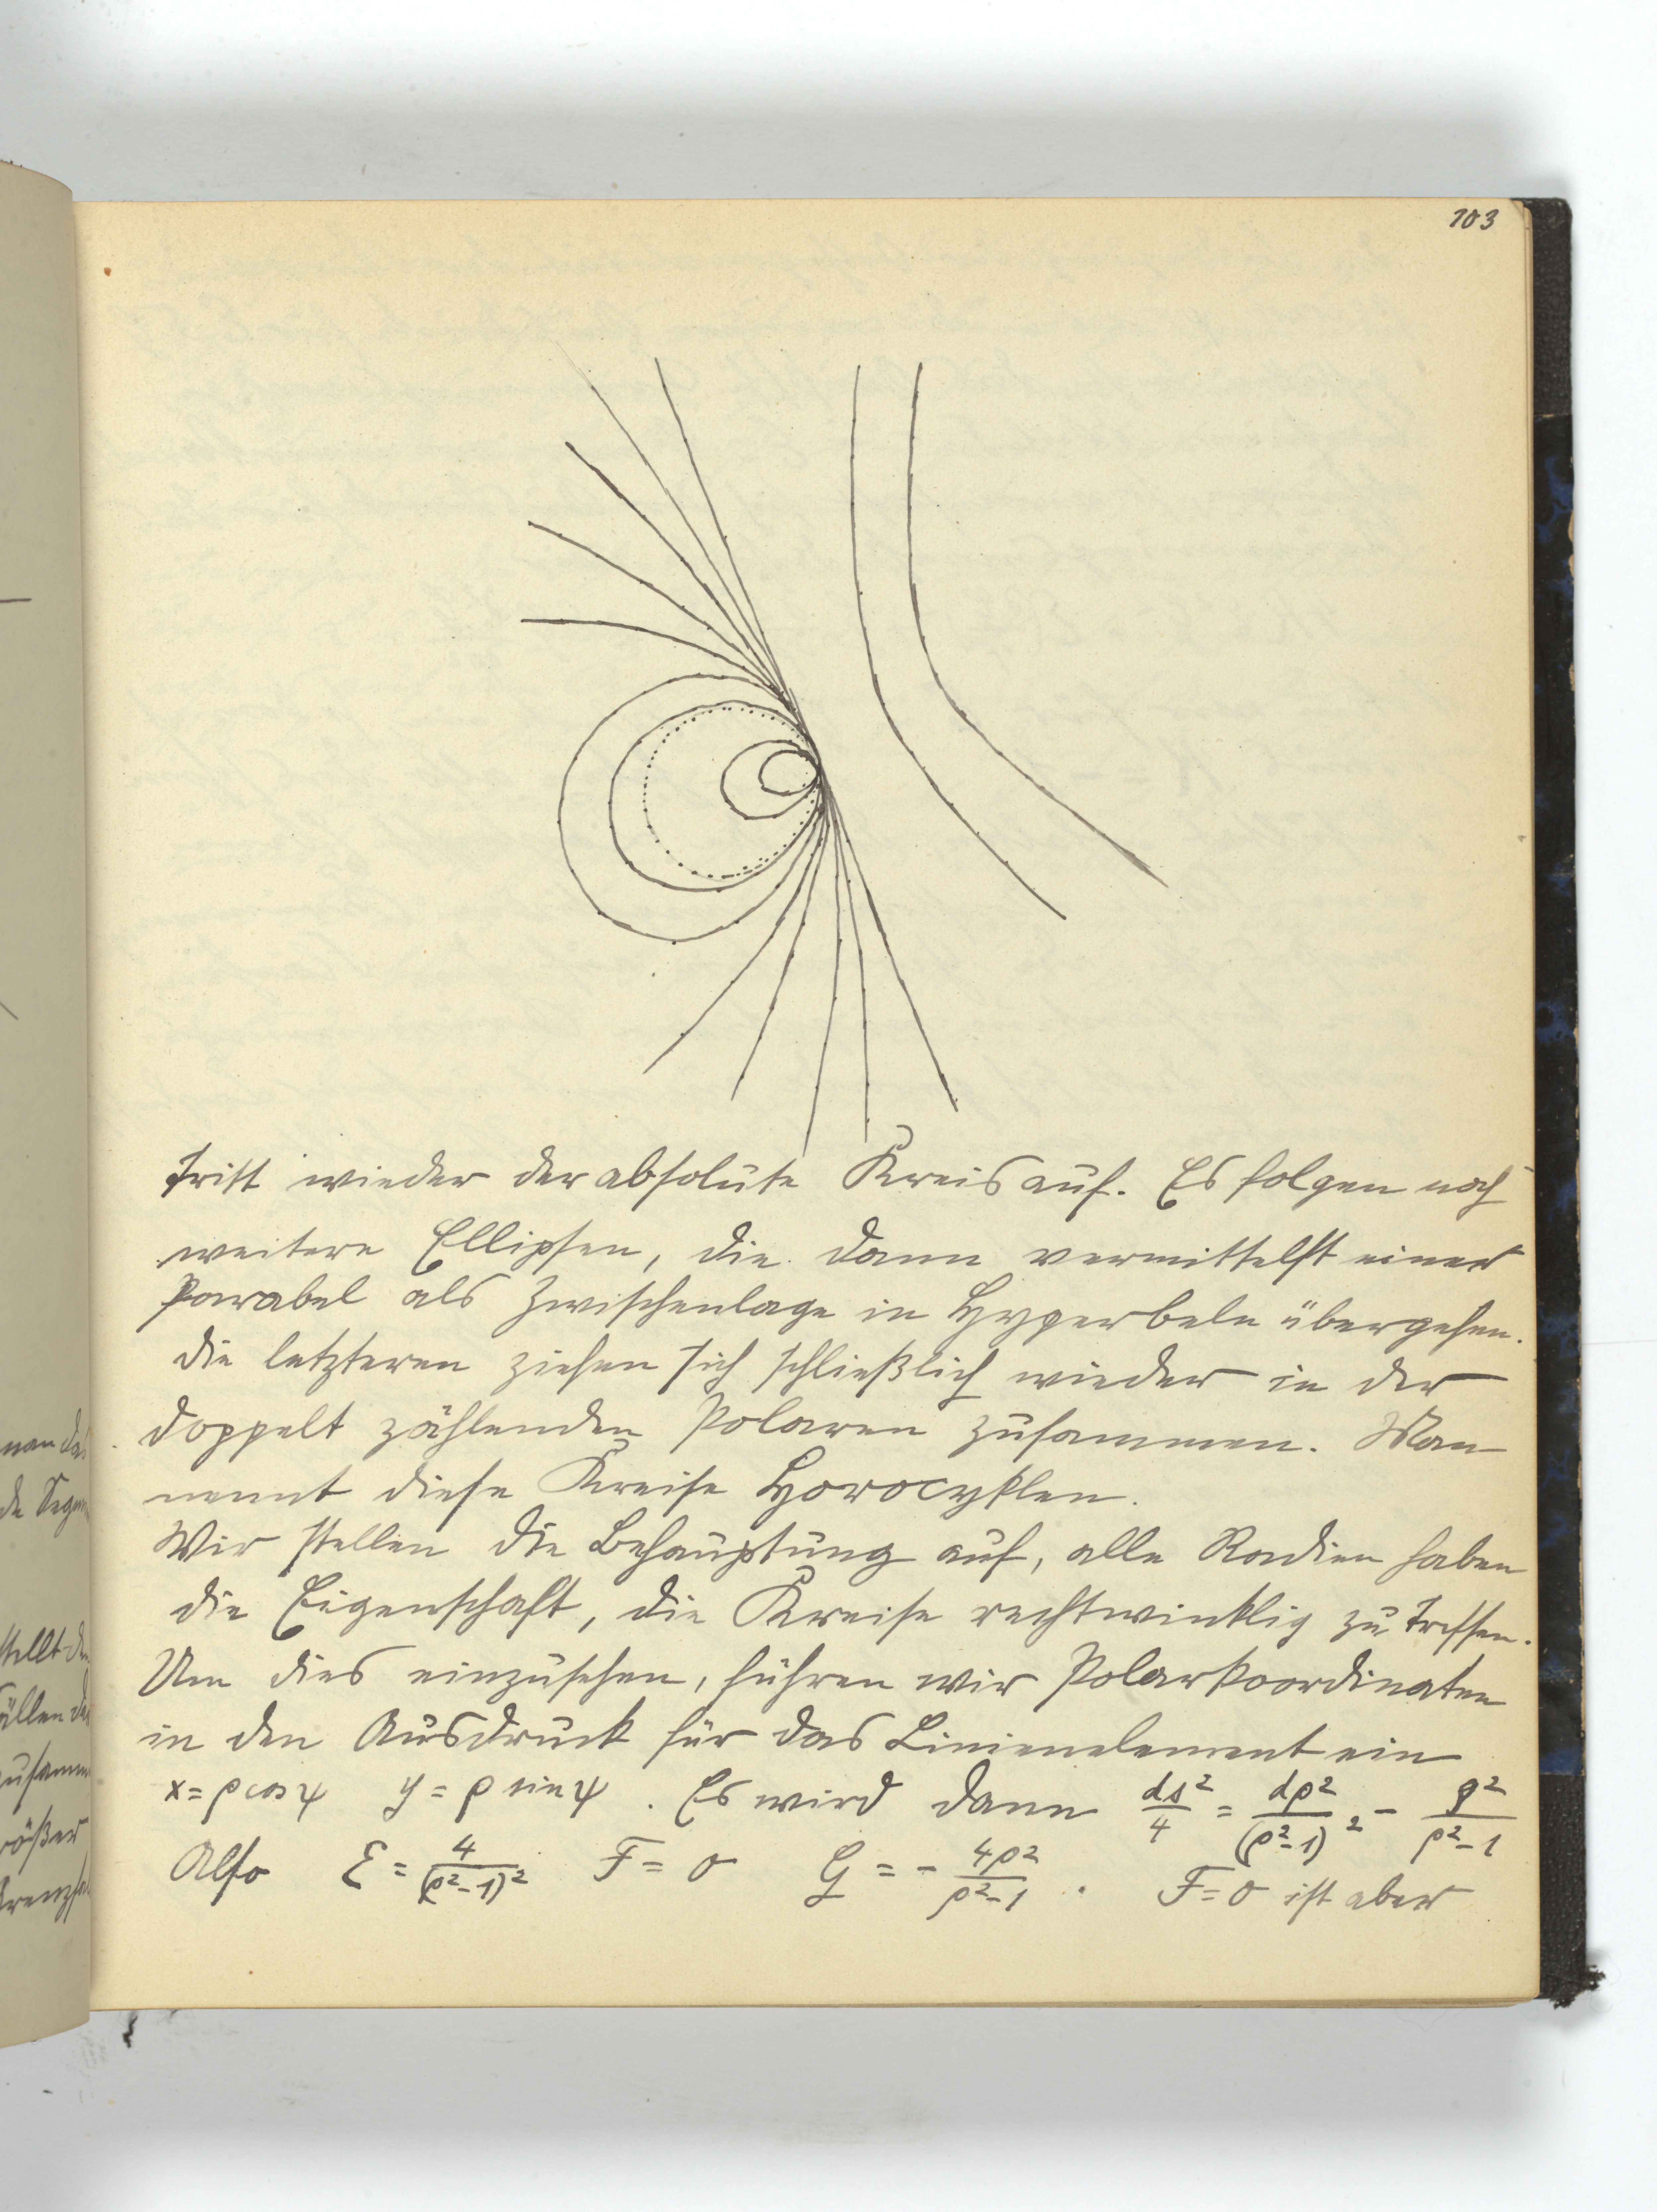 103
tritt wieder der absolute Kreis auf. Es folgen noch
weitere Ellipsen, die dann vermittelst einer
Parabel als Zwischenlage in Hyperbeln übergehen.
die letzteren ziehen sich schließlich wieder in der
doppelt zählenden Polaren zusammen. Man
nennt diese Kreise Horocyklen.
Wir stellen die Behauptung auf, alle Radien haben
die Eigenschaft, die Kreise rechtwinklig zu treffen.
Um dies einzusehen, führen wir Polarkoordinaten
in den Ausdruck für das Linienelement ein
x = ρ cos ψ y = ρ sin ψ . Es wird dann ds²/4 = dρ²/(ρ²-1)² - ρ²/ρ²-1
Also E = 4/(ρ²-1)² F = 0 G = - 4ρ²/ρ²-1 . F = 0 ist aber